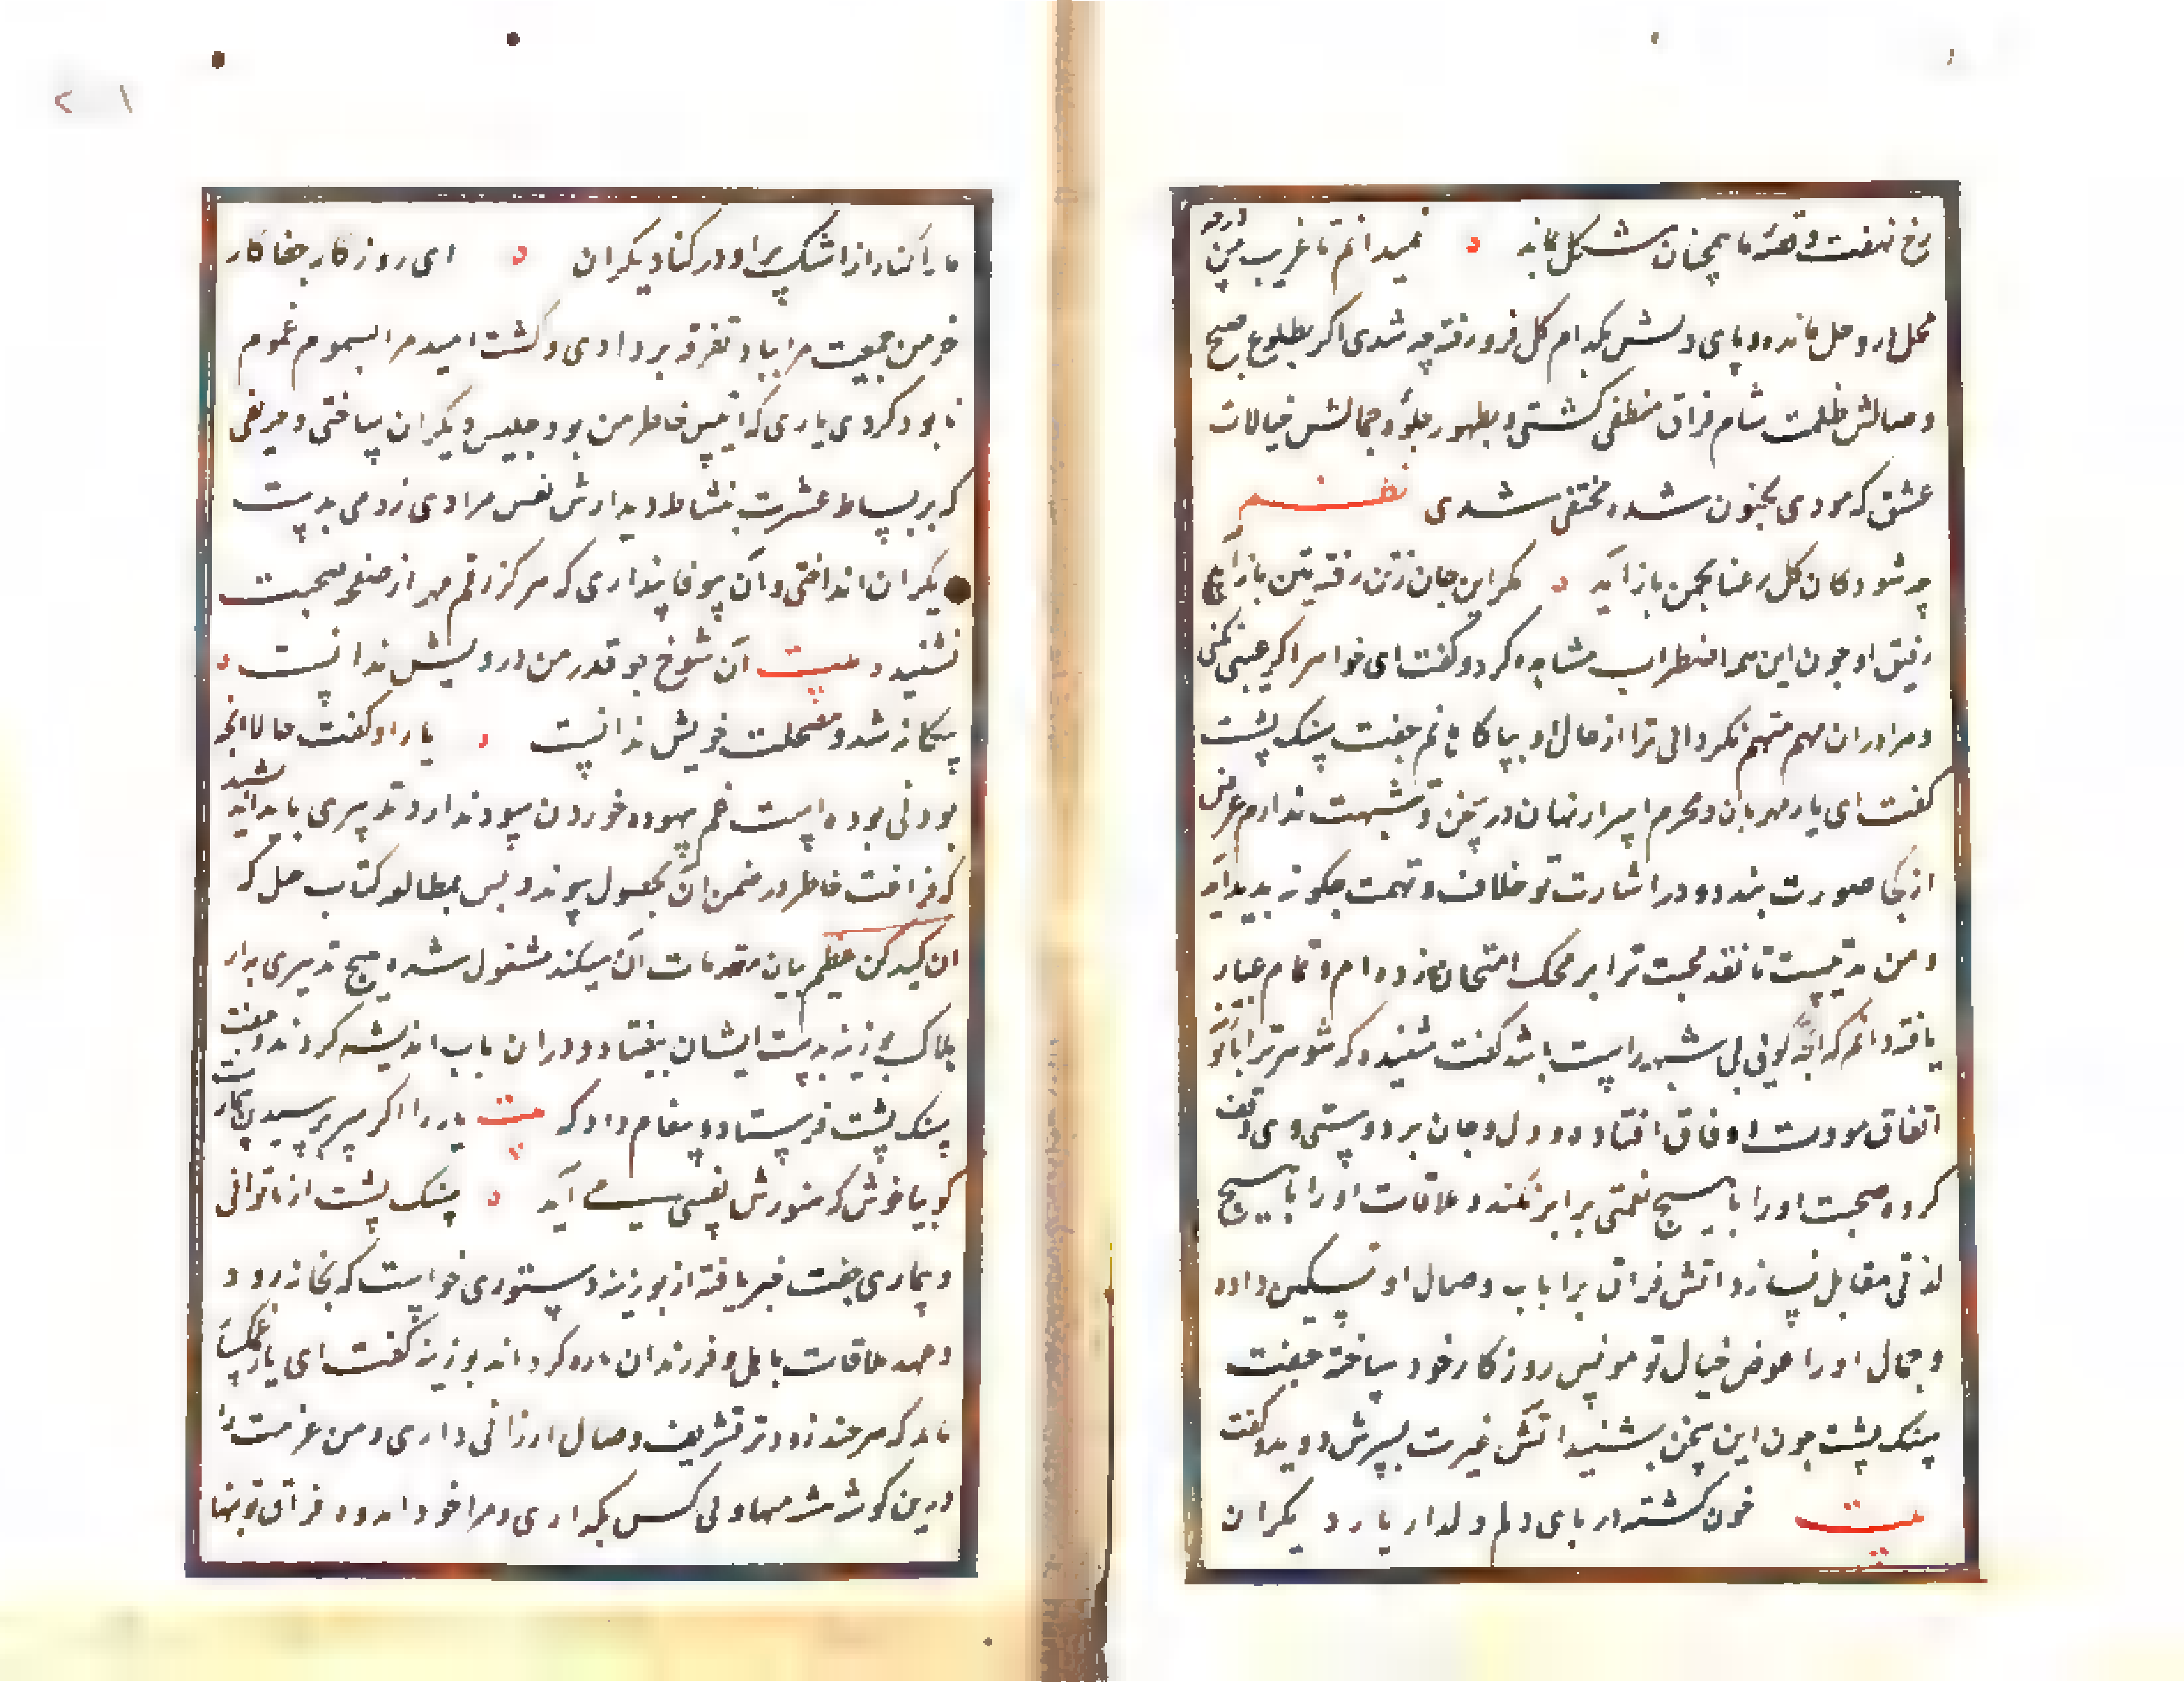 رخ نهفت و قصهٔ ما همچنان مشکل بماند نمیدانم تا غریب من در چه
محل بار و حل مانده و پای دلش بکدام کل فرو رفته چه شدی اکر بطلوع صبح
وصالش ظلمت شام فراق منطفی کشتی و بظهور جلوهٔ جمالش خیالات
عشق که مودی بجنون شده مختفی شدی نظم
چه شود کان کل رعنا بچمن باز آید مکر این جان زتن رفته بتن باز آید
رفیق او چون این همه اضطراب مشاهده کرد و کفت ای خواهر اکر عیبی نکنی
و مرا در ان مهم متهم نکردانی ترا از حال او بیاکاهانم جفت سنک پشت
کفت ای یار مهربان و محرم اسرار نهان در سخن تو شبهت ندارم غرض
از کجا صورت بندد و در اشارت تو خلاف و تهمت چکونه بدید آید
و من مدتیست تا نقد محبت ترا بر محک امتحان زده ام و تمام عیار
یافته دانم که آنچه کویی بی شبهه راست باشد کفت شنیدم که شوهر ترا با بوزنه
اتفاق مودت و وفاق افتاده و دل و جان بر دوستی وی وقف
کرده صحبت او را با هیچ نعمتی برابر نکند و ملاقات او را با هیچ
لذتی مقابل نسازد و اتش فراق ترا باب وصال او تسکین داده
و جمال او را عوض خیال تو مونس روزکار خود ساخته جفت
سنک پشت چون این سخن بشنید آتش غیرت بسرش دوید و کفت
بیت خون کشته در بای دلم دلدار یار دیکران
ما را کنار از اشک پر او در کنار دیکران ای روزکار جفا کار
خرمن جمعیت مرا بباد تفرقه بر دادی و کشت امید مرا بسموم غموم
نابود کردی یاری که انیس خاطر من بود جلیس دیکران ساختی و حریفی
که بر بساط عشرت بنشاط دیدارش نفس مرادی زدمی بدست
دیکران انداختی و آن بیوفا پنداری که هرکز رقم مهر از صفحه صحبت
نشنیده بیت آن شوخ چو قدر من درویش ندانست
بیکانه شد و مصلحت خویش ندانست یار او کفت حالا آنچه
بودنی بوده است غم بیهوده خوردن سود ندارد تدبیری باید اندیشید
که فراغت خاطر در ضمن آن بحصول پیوندد پس بمطالعه کتاب حیل که
ان کیدکن عظیم بیان مقدمات آن میکند مشغول شده هیچ تدبیری برای
هلاک بوزینه بدست ایشان بیفتاد و در ان باب اندیشه کردند و جفت
سنک پشت فرستاد و پیغام داد که بیت یار را اکر سر پرسیدن بیمارست
کو بیا خوش که هنوزش نفسی می آید سنک پشت از ناتوانی
و بیماری جفت خبر یافته از بوزینه دستوری خواست که بخانه رود و
و عهد ملاقات با اهل و فرزندان تازه کرداند بوزینه کفت ای یار غمکسار
باید که هر چند زودتر تشریف وصال ارزانی داری و من غرمت را
درین کوشه تنها و بی کس نکذاری و مرا خود اندوه فراق تو تنها